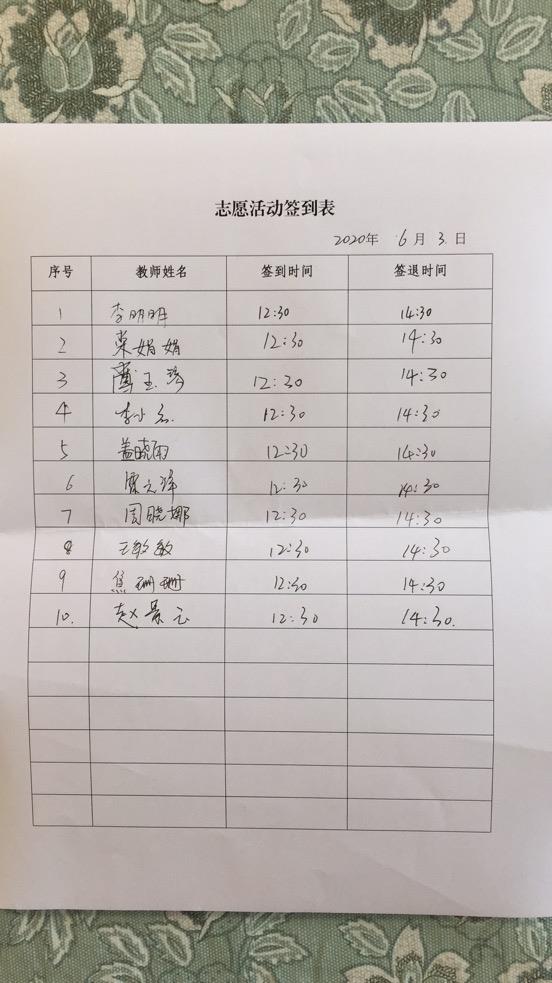 志愿活动签到表
2020年 6月 3日
序号 教师姓名 签到时间 签退时间
1 李明明 12:30 14:30
2 栾娟娟 12:30 14:30
3 12:30 14:30
4 李小 12:30 14:30
5 盖晓雨 12:30 14:30
6 12:30 14:30
7 周晓娜 12:30 14:30
8 王敏敏 12:30 14:30
9 焦珊珊 12:30 14:30
10. 赵景云 12:30 14:30.